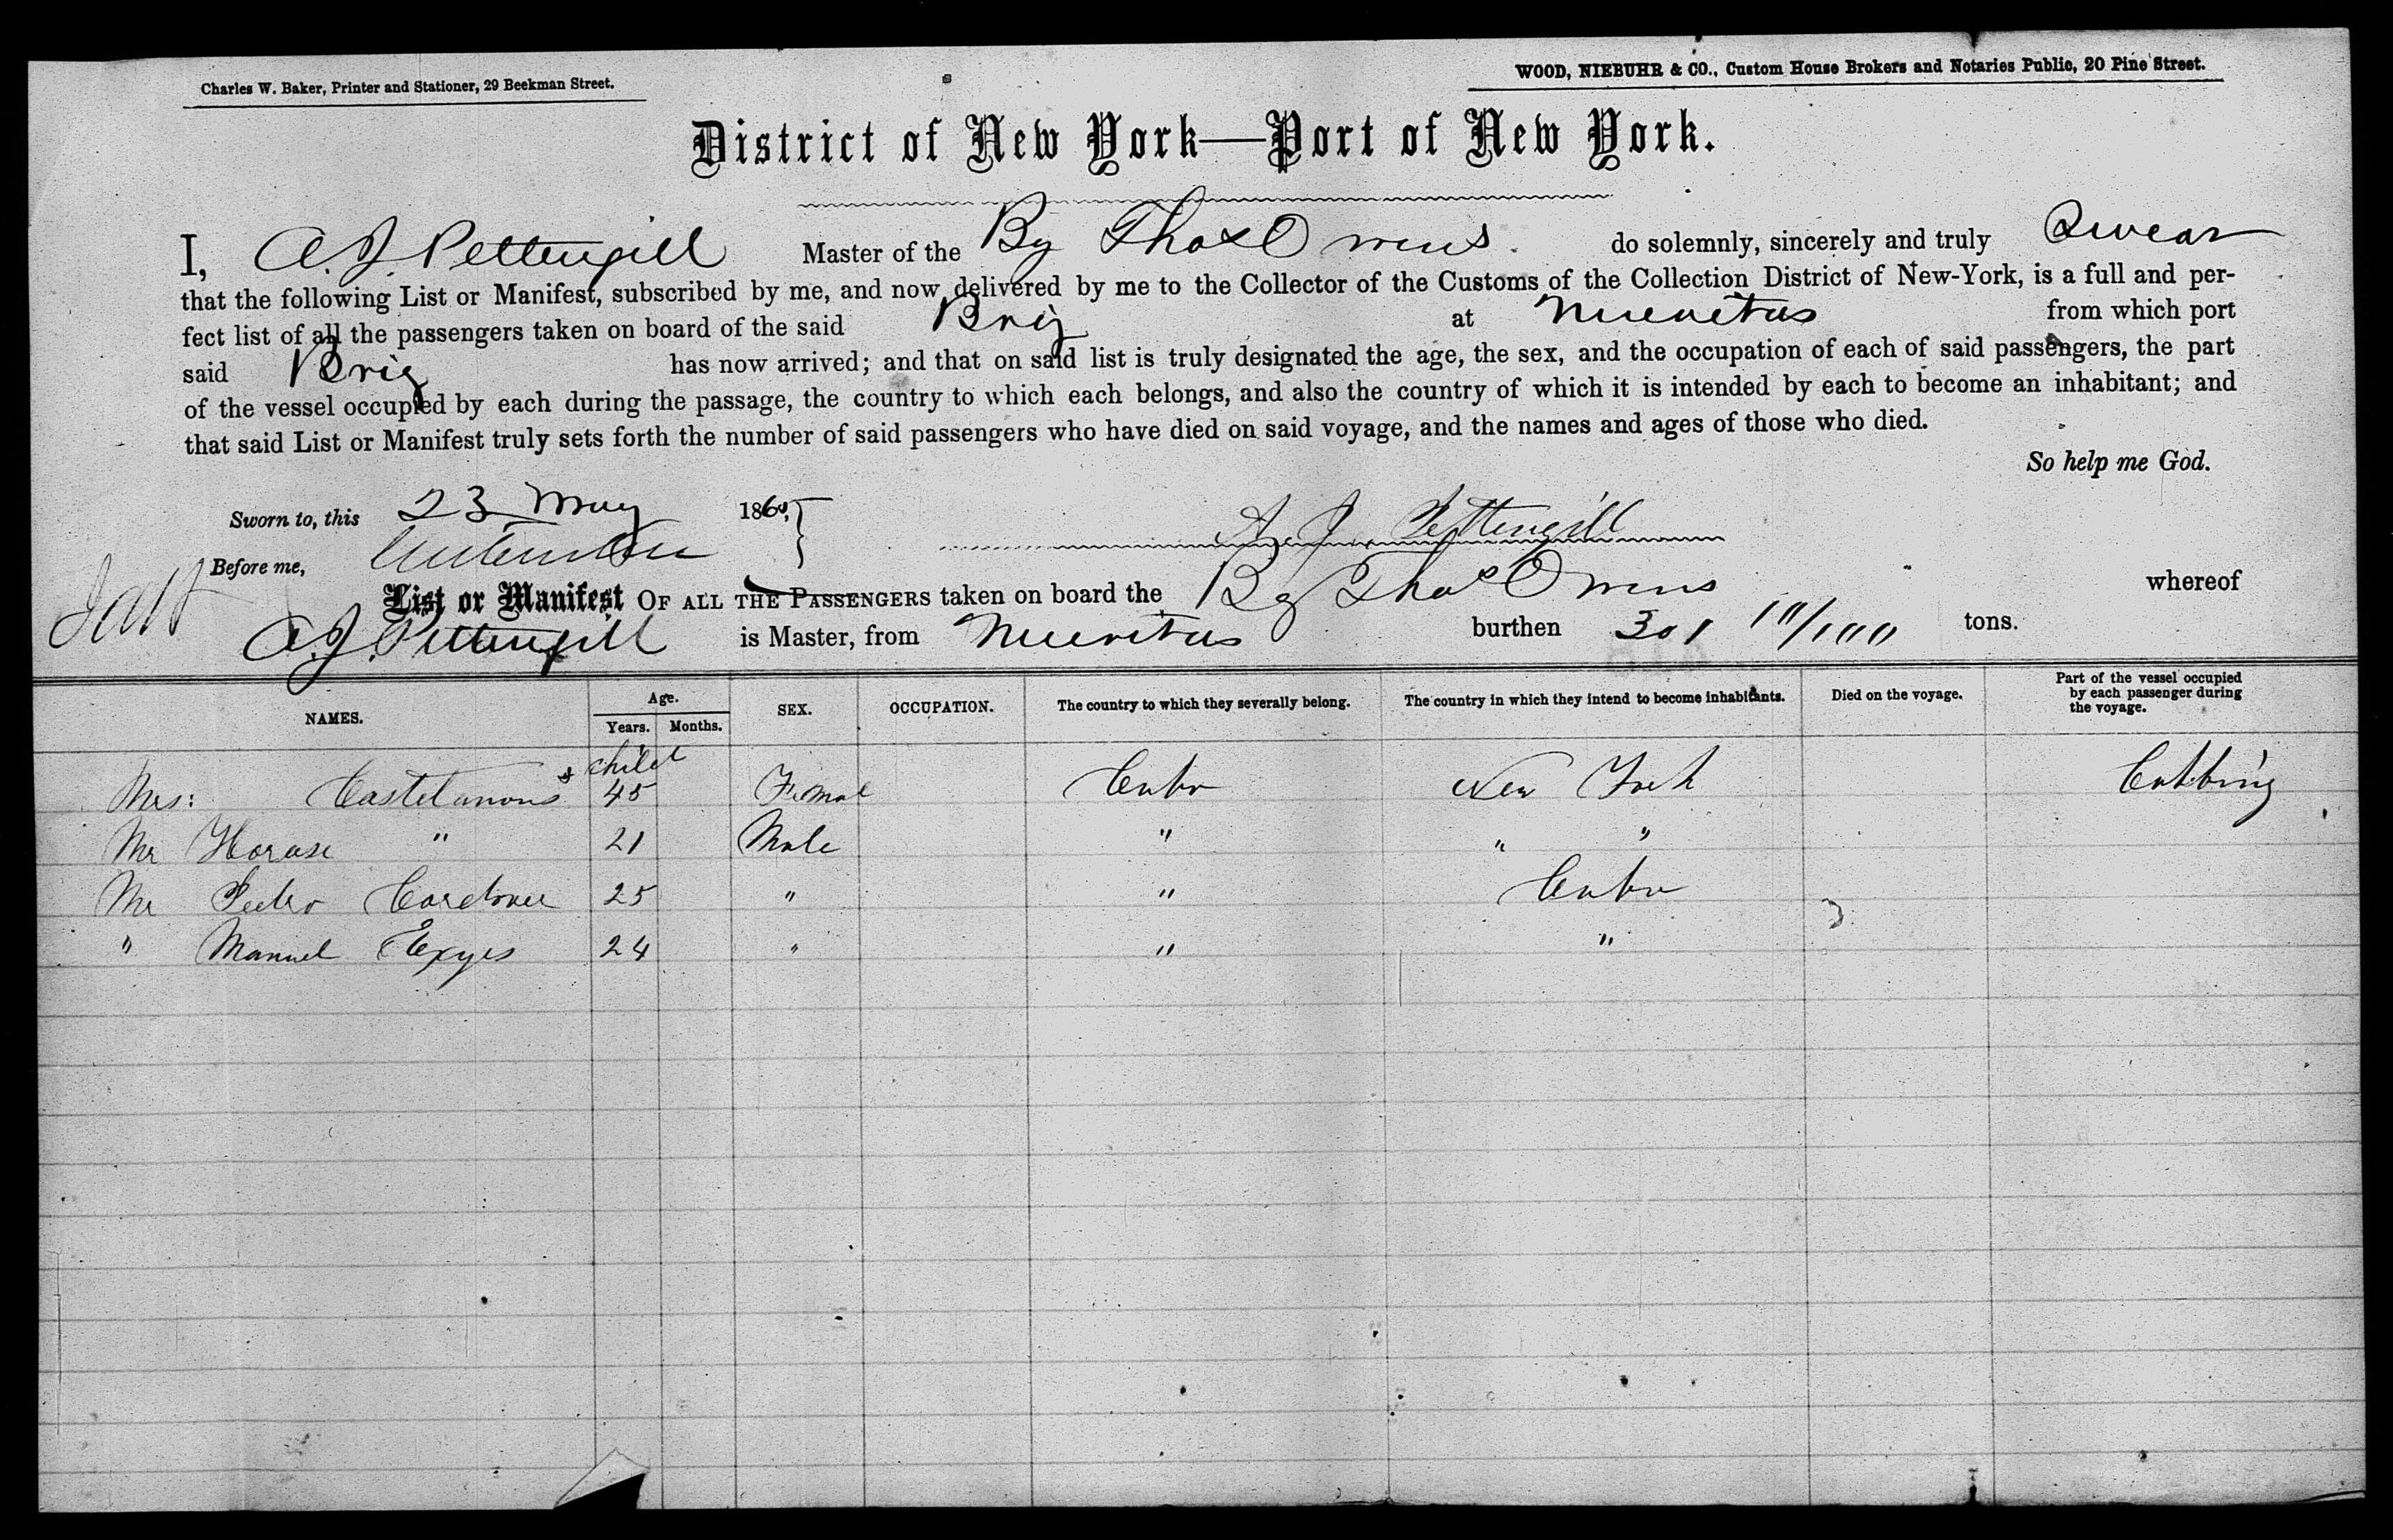 Charles W. Baker, Printer and Stationer, 29 Beekman Street.
WOOD, NIEBUHR & CO., Custom House Brokers and Notaries Public, 20 Pine Street.
District of New York—Port of New York.
I, A. J. Pettengill Master of the Bg Thos Owens do solemnly, sincerely and truly Swear
that the following List or Manifest, subscribed by me, and now delivered by me to the Collector of the Customs of the Collection District of New-York, is a full and per-
fect list of all the passengers taken on board of the said Brig at Nuevitas from which port
said Brig has now arrived; and that on said list is truly designated the age, the sex, and the occupation of each of said passengers, the part
of the vessel occupied by each during the passage, the country to which each belongs, and also the country of which it is intended by each to become an inhabitant; and
that said List or Manifest truly sets forth the number of said passengers who have died on said voyage, and the names and ages of those who died.
So help me God.
Sworn to, this 23 May 186
A. J. Pettengill
Before me,
List or Manifest OF ALL THE PASSENGERS taken on board the Bg Thos Owens whereof
A. J. Pettengill is Master, from Nuevitas burthen 301 10/100 tons.
NAMES. Age. Years. Months. SEX. OCCUPATION. The country to which they severally belong. The country in which they intend to become inhabitants. Died on the voyage. Part of the vessel occupied by each passenger during the voyage.
Mrs: & child 45 Femal Cuba New York
Mr " 21 Male " " "
Mr Pedro 25 " " Cuba
" Manuel 24 " " "